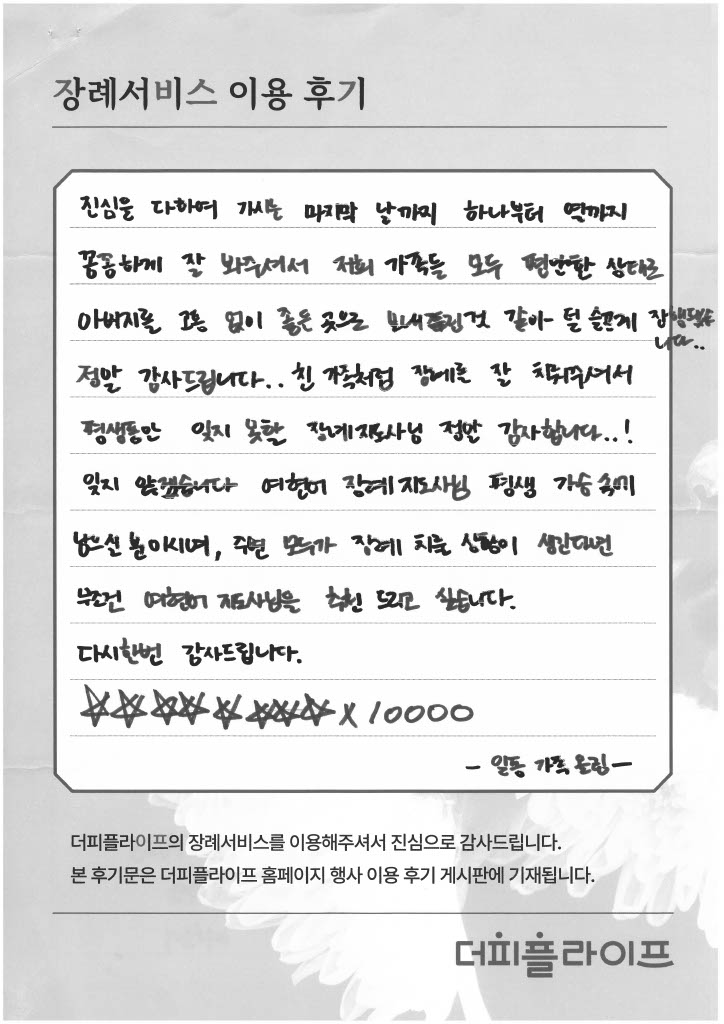 장례서비스 이용 후기
진심을 다하여 가시는 마지막 날까지 하나부터 열까지
꽁꽁하게 잘 봐주셔서 저희 가족들 모두 평안한 상태로
아버지를 고통 없이 좋은 곳으로 보내드린것 같아 덜 슬프게 장행했습
니다..
정말 감사드립니다.. 친 가족처럼 장례를 잘 치뤄주셔서
평생동안 잊지 못할 장례지도사님 정말 감사합니다..!
잊지 않겠습니다 여현어 장례지도사님 평생 가슴 속에
남으실 분이시며, 주변 모두가 장례 치를 상황이 생긴다면
무조건 여현어 지도사님을 추천 드리고 싶습니다.
다시한번 감사드립니다.
☆☆☆☆☆☆☆☆ x 10000
- 일동 가족 올림 -
더피플라이프의 장례서비스를 이용해주셔서 진심으로 감사드립니다.
본 후기문은 더피플라이프 홈페이지 행사 이용 후기 게시판에 기재됩니다.
더피플라이프